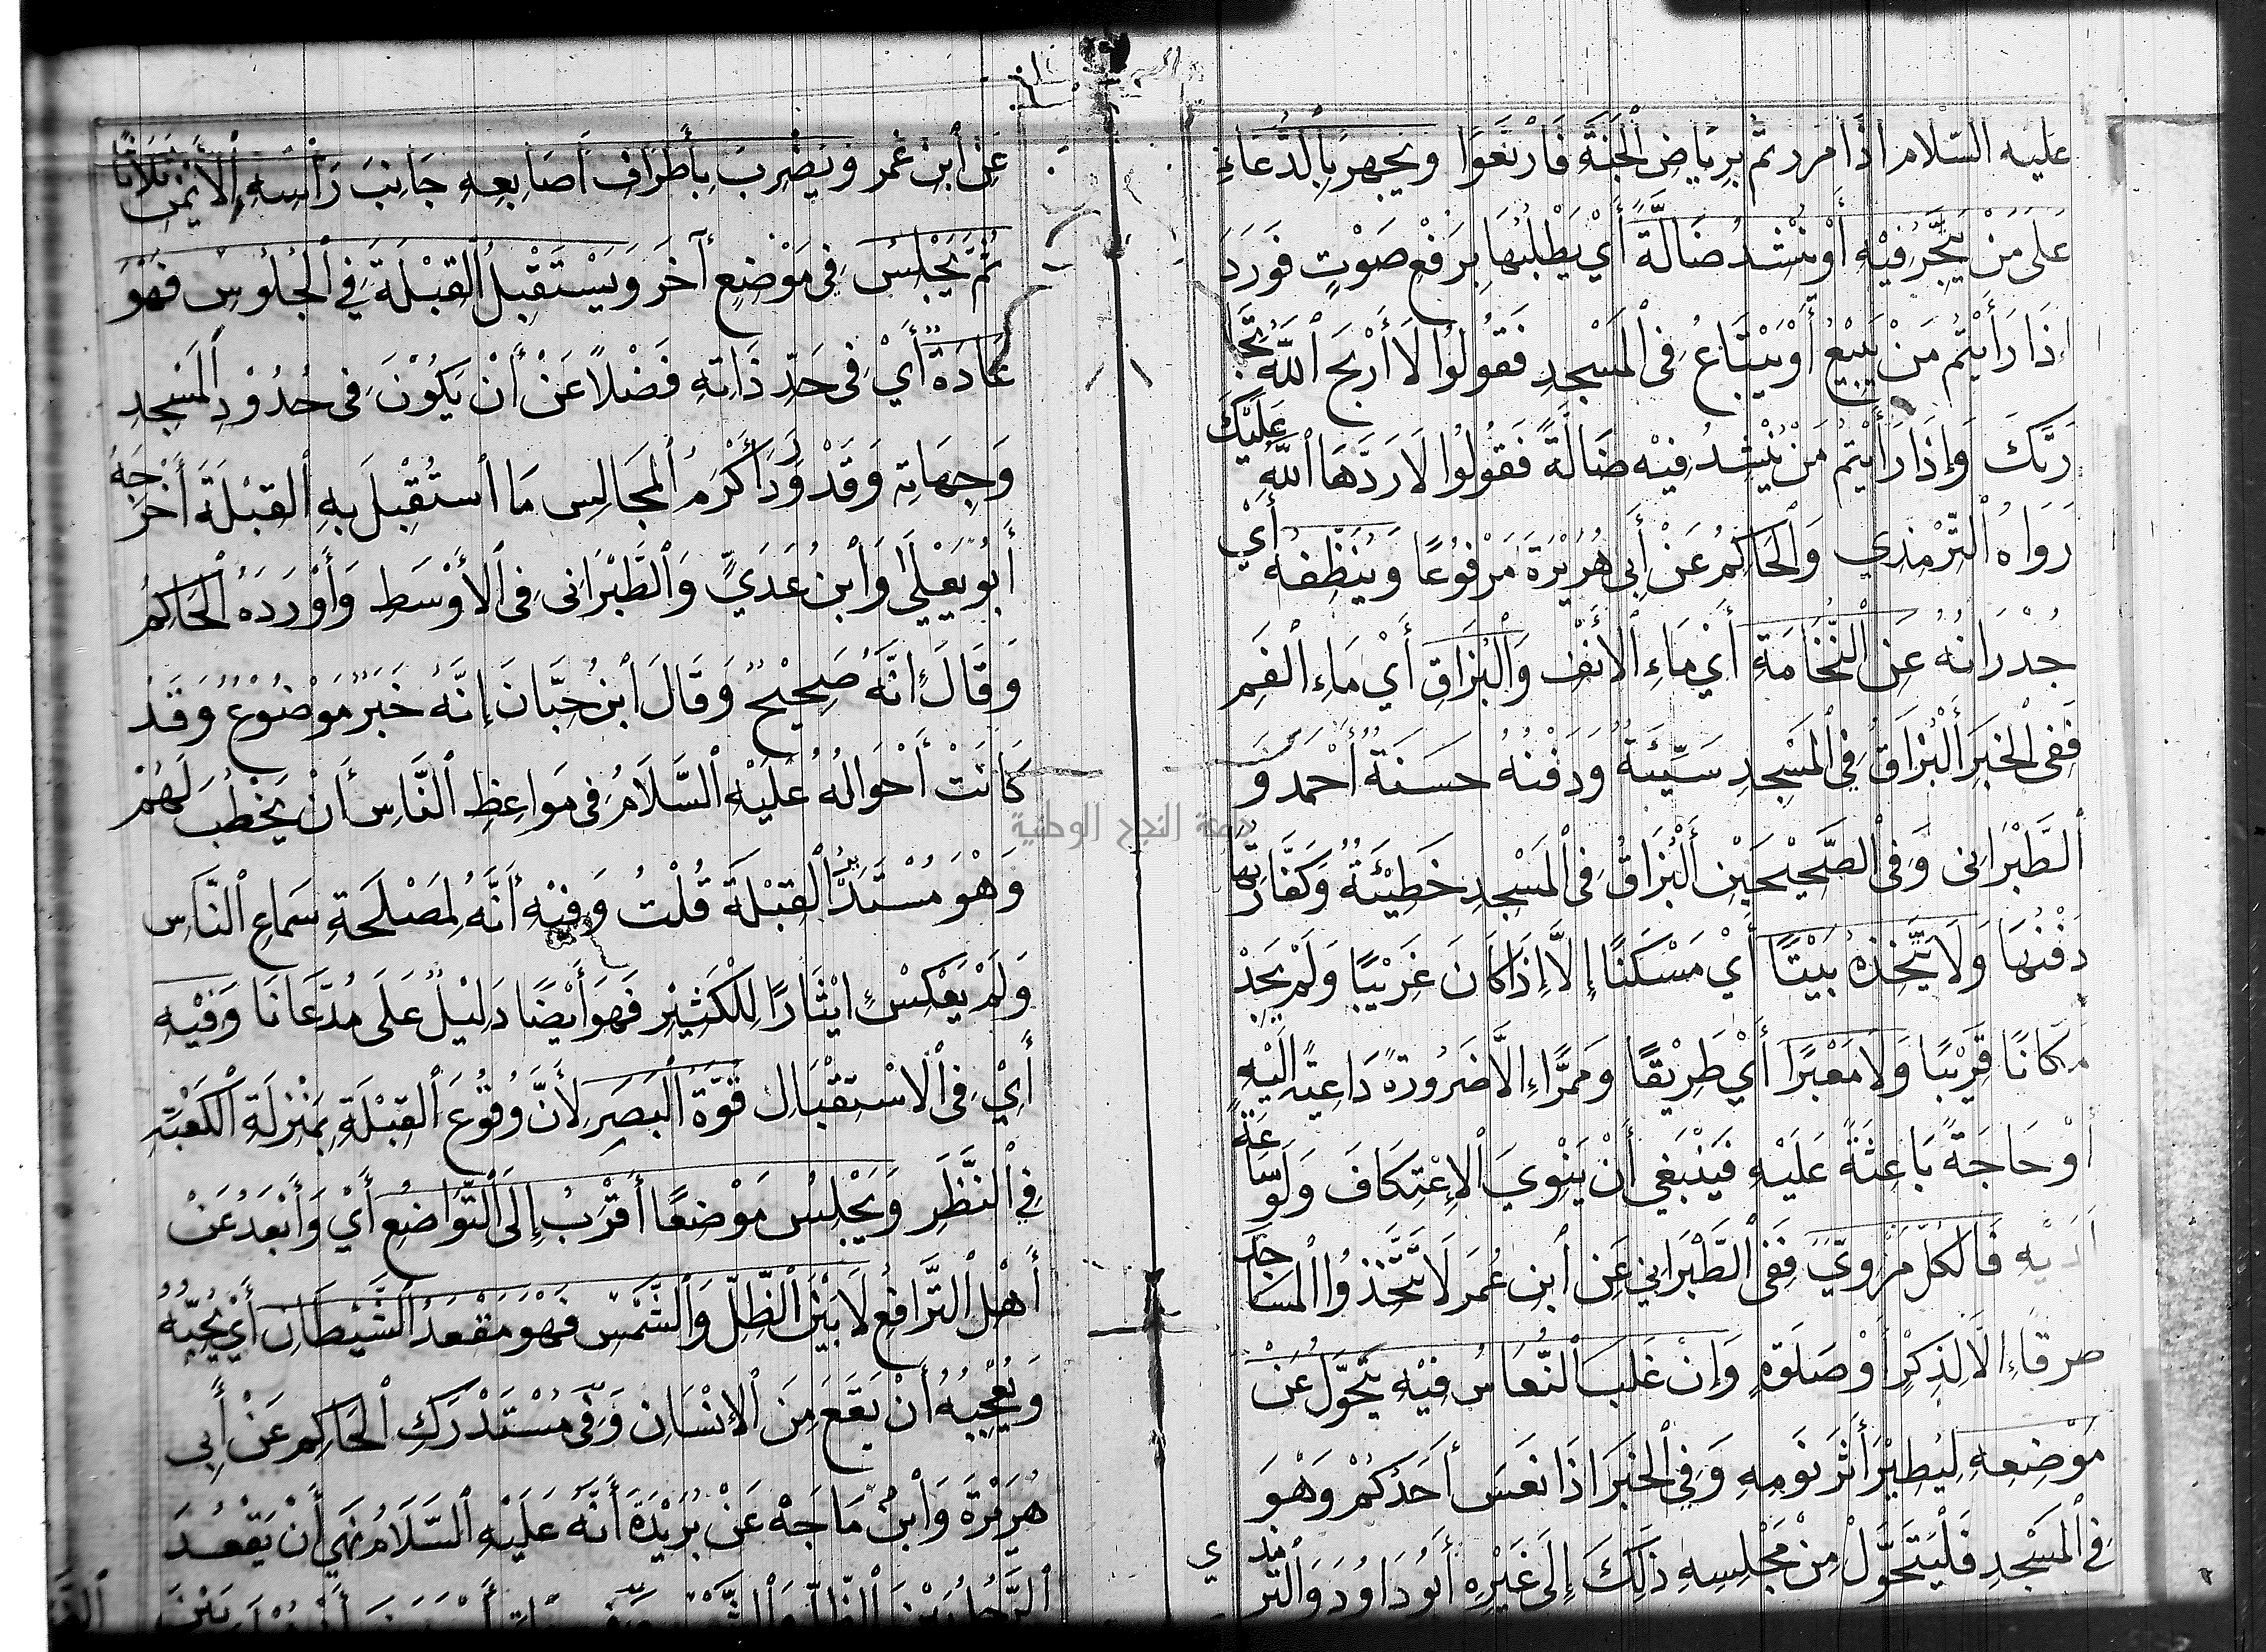 عليه السّلام اذا مررتم برياض الجنة فارتعوا ويجهر بالدعاء
على من يتّجر فيه أو ينشد ضالّة أي يطلبها برفع صوت فورد
إذا رأيتم من يبيع أو يبتاع في المسجد فقولوا لا أربح الله تجا
رتك وإذا رأيتم من ينشد فيه ضالة فقولوا لا ردّها الله عليك
رواه الترمذي والحاكم عن أبي هريرة مرفوعا وينظّفه أي
جدرانه عن النّخامة أي ماء الأنف والبزاق أي ماء الفم
ففي الخبر البزاق في المسجد سيّئة ودفنه حسنة أحمد و
الطّبراني وفي الصّحيحين البزاق في المسجد خطيئة وكفّارتها
دفنها ولا يتّخذه بيتا أي مسكنا إلاّ إذا كان غريبا ولم يجد
مكانا قريبا ولا معبرا أي طريقا وممرّا إلاّ ضرورة داعية إليه
أو حاجة باعثة عليه فينبغي أن ينوي الإعتكاف ولو ساعة
لديه فالكلّ مرويّ ففي الطّبراني عن ابن عمر لا تتّخذوا المساجد
طرقا إلا لذكر أو صلوة وإن غلب النّعاس فيه يتحوّل عن
موضعه ليطير أثر نومه وفي الخبر اذا نعس أحدكم وهو
في المسجد فليتحوّل من مجلسه ذلك إلى غيره أبو داود والترمذ
ي
عن ابن عمر ويضرب بأطراف أصابعه جانب رأسه الأيمن ثلاثا
ثمّ يجلس في موضع آخر ويستقبل القبلة في الجلوس فهو
عادة أي في حدّ ذاته فضلا عن أن يكون في حدود المسجد
وجهاته وقد ورد أكرم المجالس ما استقبل به القبلة أخرجه
أبو يعلى وابن عديّ والطّبراني في الأوسط وأورده الحاكم
وقال إنّه صحيح وقال ابن حبّان إنّه خبر موضوع وقد
كانت أحواله عليه السّلام في مواعظ النّاس أن يخطب لهم
وهو مستدبر القبلة قلت وفيه أنّه لمصلحة سماع النّاس
ولم يعكس إيثارا للكثير فهو أيضا دليل على مدّعانا وفيه
أي في الاستقبال قوّة البصر لأنّ وقوع القبلة بمنزلة الكعبة
في النّظر ويجلس موضعا أقرب إلى التّواضع أي وأبعد عن
أهل التّرافع لا بين الظّلّ والشّمس فهو مقعد الشّيطان أي يحبّه
ويعجبه أن يقع من الإنسان وفي مستدرك الحاكم عن أبي
هريرة وابن ماجه عن بريدة أنّه عليه السّلام نهى أن يقعد
الرّجل بين الظّلّ والشّمس